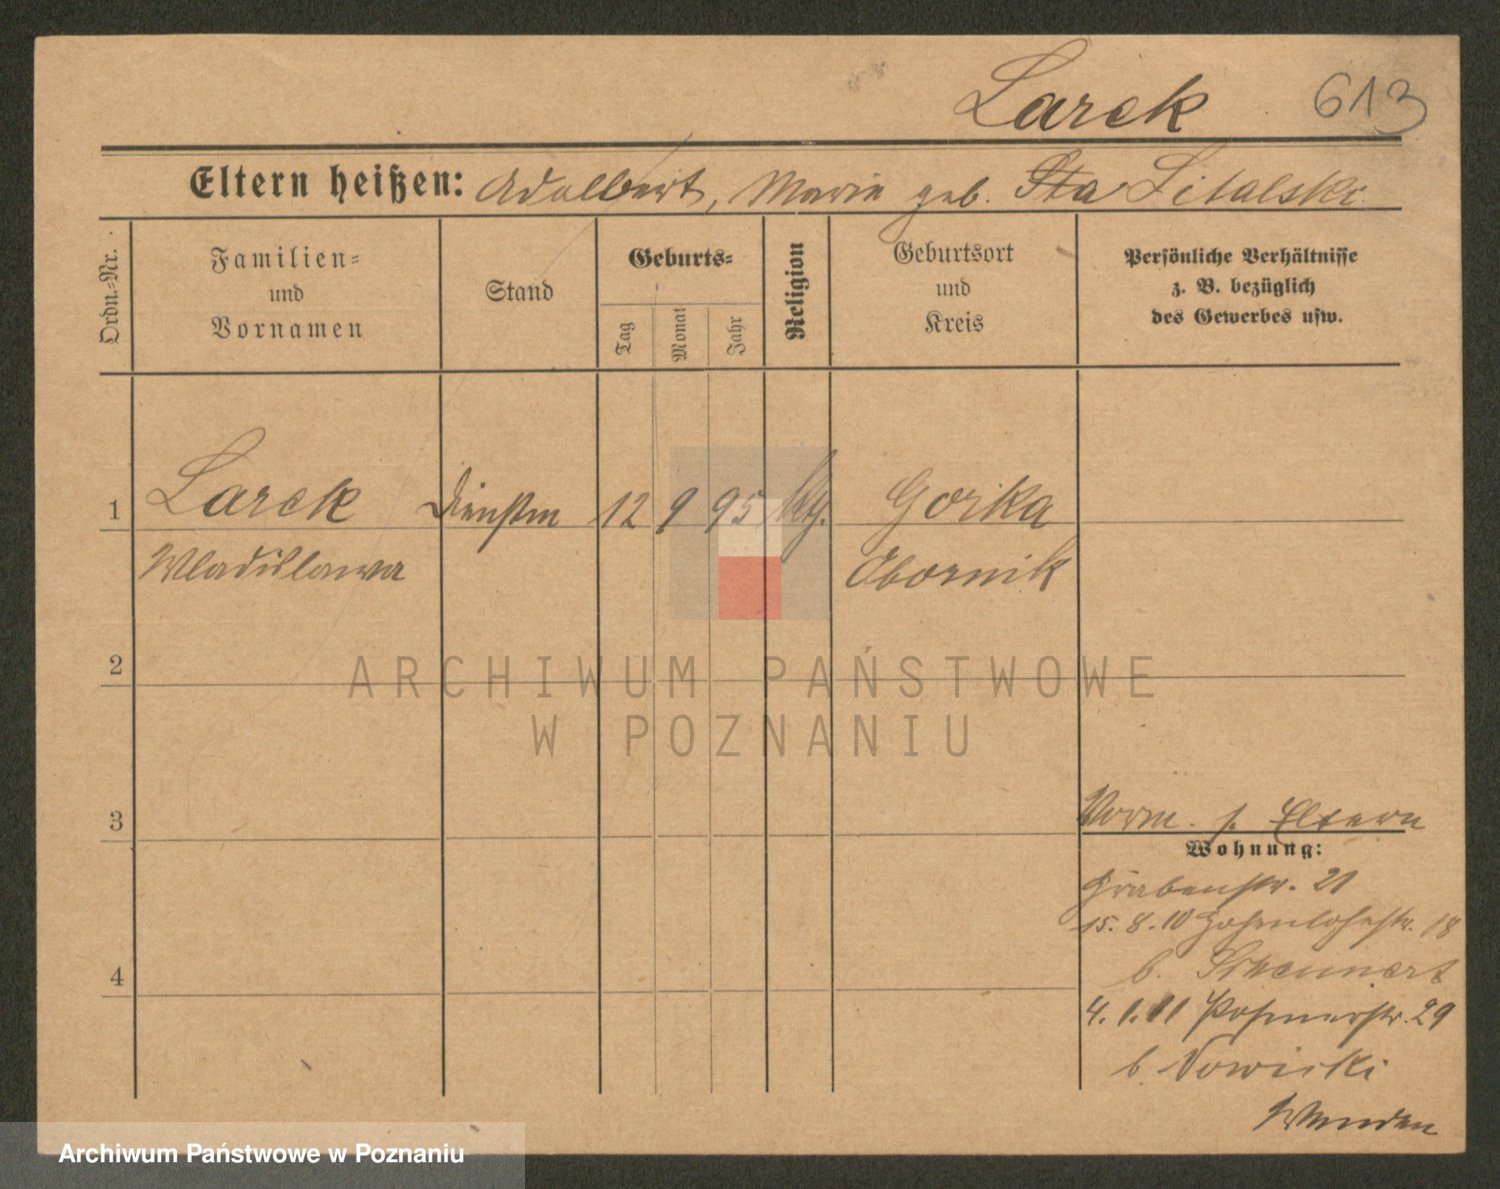 Larek 613
Eltern heißen: Adalbert, Marie geb. Sta Litalski
Ordn.-Nr.
Familien-
und
Vornamen
Stand
Geburts-
Tag
Monat
Jahr
Religion
Geburtsort
und
Kreis
Persönliche Verhältnisse
z. B. bezüglich
des Gewerbes usw.
1 Larek Dienstm 12 9 95 kth. Gorka
Wladislawa Obornik
2
3
4
Vorm. s. Eltern
Wohnung:
Grabenstr. 21
15. 8. 10 Hohenlohestr. 18
b.
4. 1. 11 Posenerstr. 29
b. Nowicki
Wenden
ARCHIWUM PAŃSTWOWE
W POZNANIU
Archiwum Państwowe w Poznaniu